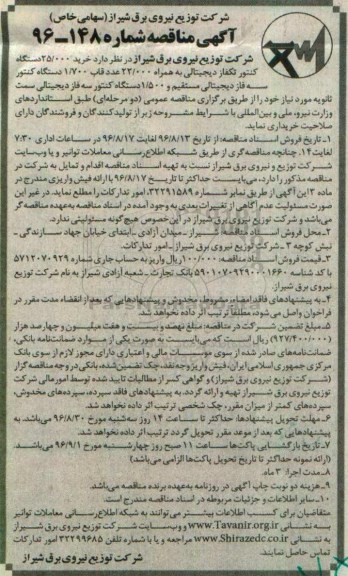 شرکت توزیع نیروی برق شیراز (سهامی خاص)
آگهی مناقصه شماره ۱۴۸-۹۶
شرکت توزیع نیروی برق شیراز در نظر دارد خرید ۲۵/۰۰۰ دستگاه
کنتور تکفاز دیجیتالی به همراه ۲۲/۰۰۰ عدد قاب ۱/۷۰۰ دستگاه کنتور
سه فاز دیجیتالی مستقیم و ۱/۵۰۰ دستگاه کنتور سه فاز دیجیتالی سمت
ثانویه مورد نیاز خود را از طریق برگزاری مناقصه عمومی (دو مرحله‌ای) طبق استانداردهای
وزارت نیرو، ملی و بین‌المللی با شرایط مشروحه زیر از تولیدکنندگان و فروشندگان دارای
صلاحیت خریداری نماید.
۱- تاریخ فروش اسناد مناقصه: از تاریخ ۹۶/۸/۱۳ لغایت ۹۶/۸/۱۷ در ساعات اداری ۷:۳۰
لغایت ۱۴، چنانچه مناقصه گری از طریق شبکه اطلاع‌رسانی معاملات توانیر و یا وب‌سایت
شرکت توزیع نیروی برق شیراز نسبت به تهیه اسناد مناقصه اقدام و تمایل به شرکت در
مناقصه مذکور را دارد، می‌بایست حداکثر تا تاریخ ۹۶/۸/۱۷ با ارائه فیش واریزی مندرج در
ماده ۳ این آگهی از طریق نمابر شماره ۳۲۲۹۱۵۸۹ امور تدارکات را مطلع نماید. در غیر این
صورت مسئولیت عدم آگاهی از تغییرات بعدی به وجود آمده در اسناد مناقصه به‌عهده مناقصه گر
می‌باشد و شرکت توزیع نیروی برق شیراز در این خصوص هیچ‌گونه مسئولیتی ندارد.
۲- محل فروش اسناد مناقصه: شیراز - میدان آزادی - ابتدای خیابان جهاد سازندگی -
نبش کوچه ۳ - شرکت توزیع نیروی برق شیراز - امور تدارکات.
۳- قیمت فروش اسناد مناقصه: ۱۰۰/۰۰۰ ریال واریز به حساب جاری شماره ۵۷۱۲۰۷۰۹۲۹
با کد شناسه ۵۹۰۱۰۷۰۹۲۹۰۰۰۱۶۶۰ بانک تجارت - شعبه آزادی شیراز به نام شرکت توزیع
نیروی برق شیراز.
۴- به پیشنهادهای فاقد امضاء، مشروط، مخدوش و پیشنهادهایی که بعد از انقضاء مدت مقرر در
فراخوان واصل می‌شود، مطلقا ترتیب اثر داده نخواهد شد.
۵- مبلغ تضمین شرکت در مناقصه: مبلغ نهصد و بیست و هفت میلیون و چهارصد هزار
(۹۲۷/۴۰۰/۰۰۰) ریال است که می‌بایست به صورت یکی از موارد ضمانت‌نامه بانکی،
ضمانت‌نامه‌های صادر شده از سوی موسسات مالی و اعتباری دارای مجوز لازم از سوی بانک
مرکزی جمهوری اسلامی ایران، فیش واریز وجه نقد، چک تضمین‌شده بانکی در وجه مناقصه گزار
(شرکت توزیع نیروی برق شیراز) و گواهی کسر از مطالبات تایید شده توسط امور مالی شرکت
توزیع نیروی برق شیراز تهیه و ارائه گردد. به پیشنهادهای فاقد سپرده، سپرده‌های مخدوش،
سپرده‌های کمتر از میزان مقرر، چک شخصی ترتیب اثر داده نخواهد شد.
۶- مهلت تحویل پیشنهادها: حداکثر تا ساعت ۱۴ روز سه‌شنبه مورخ ۹۶/۸/۳۰ می‌باشد. به
پیشنهادهایی که بعد از موعد مقرر تحویل گردد ترتیب اثر داده نخواهد شد.
۷- تاریخ بازگشایی پاکت‌ها ساعت ۱۱ صبح روز چهارشنبه مورخ ۹۶/۹/۱ می‌باشد.
(ارائه نمونه حداکثر تا تاریخ تحویل پاکت‌ها الزامی می‌باشد)
۸- مدت اجرا: ۳ ماه.
۹- هزینه دو نوبت چاپ آگهی در روزنامه به‌عهده برنده مناقصه می‌باشد.
۱۰- سایر اطلاعات و جزئیات مربوطه در اسناد مناقصه مندرج است.
متقاضیان برای کسب اطلاعات بیشتر می‌توانند به شبکه اطلاع‌رسانی معاملات توانیر
به نشانی www.Tavanir.org.ir و وب‌سایت شرکت توزیع نیروی برق شیراز
به نشانی www.Shirazedc.co.ir مراجعه و یا با شماره تلفن ۳۲۲۹۹۶۸۵ امور تدارکات
تماس حاصل نمایند.
شرکت توزیع نیروی برق شیراز